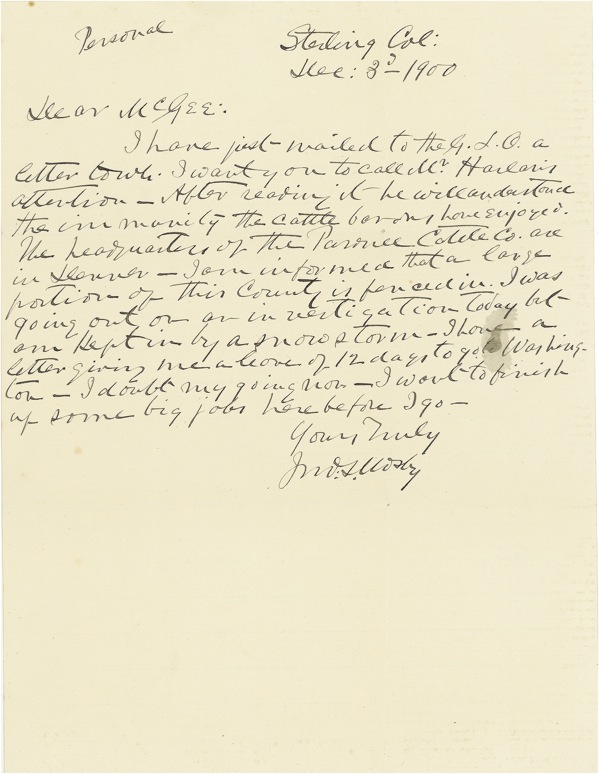 Personal
Sterling Col:
Dec: 3d - 1900
Dear McGee:
I have just mailed to the G. L. O. a
letter to wh. I want you to call Mr Harlan's
attention - After reading it he will understand
the immunity the cattle barons have enjoyed.
The headquarters of the Pawnee Cattle Co. are
in Denver - I am informed that a large
portion of this County is fenced in. I was
going out on an investigation today but
am kept in by a snow storm - I have a
letter giving me a leave of 12 days to go to Washing-
ton - I doubt my going now - I want to finish
up some big jobs here before I go -
Yours Truly
Jno. S. Mosby